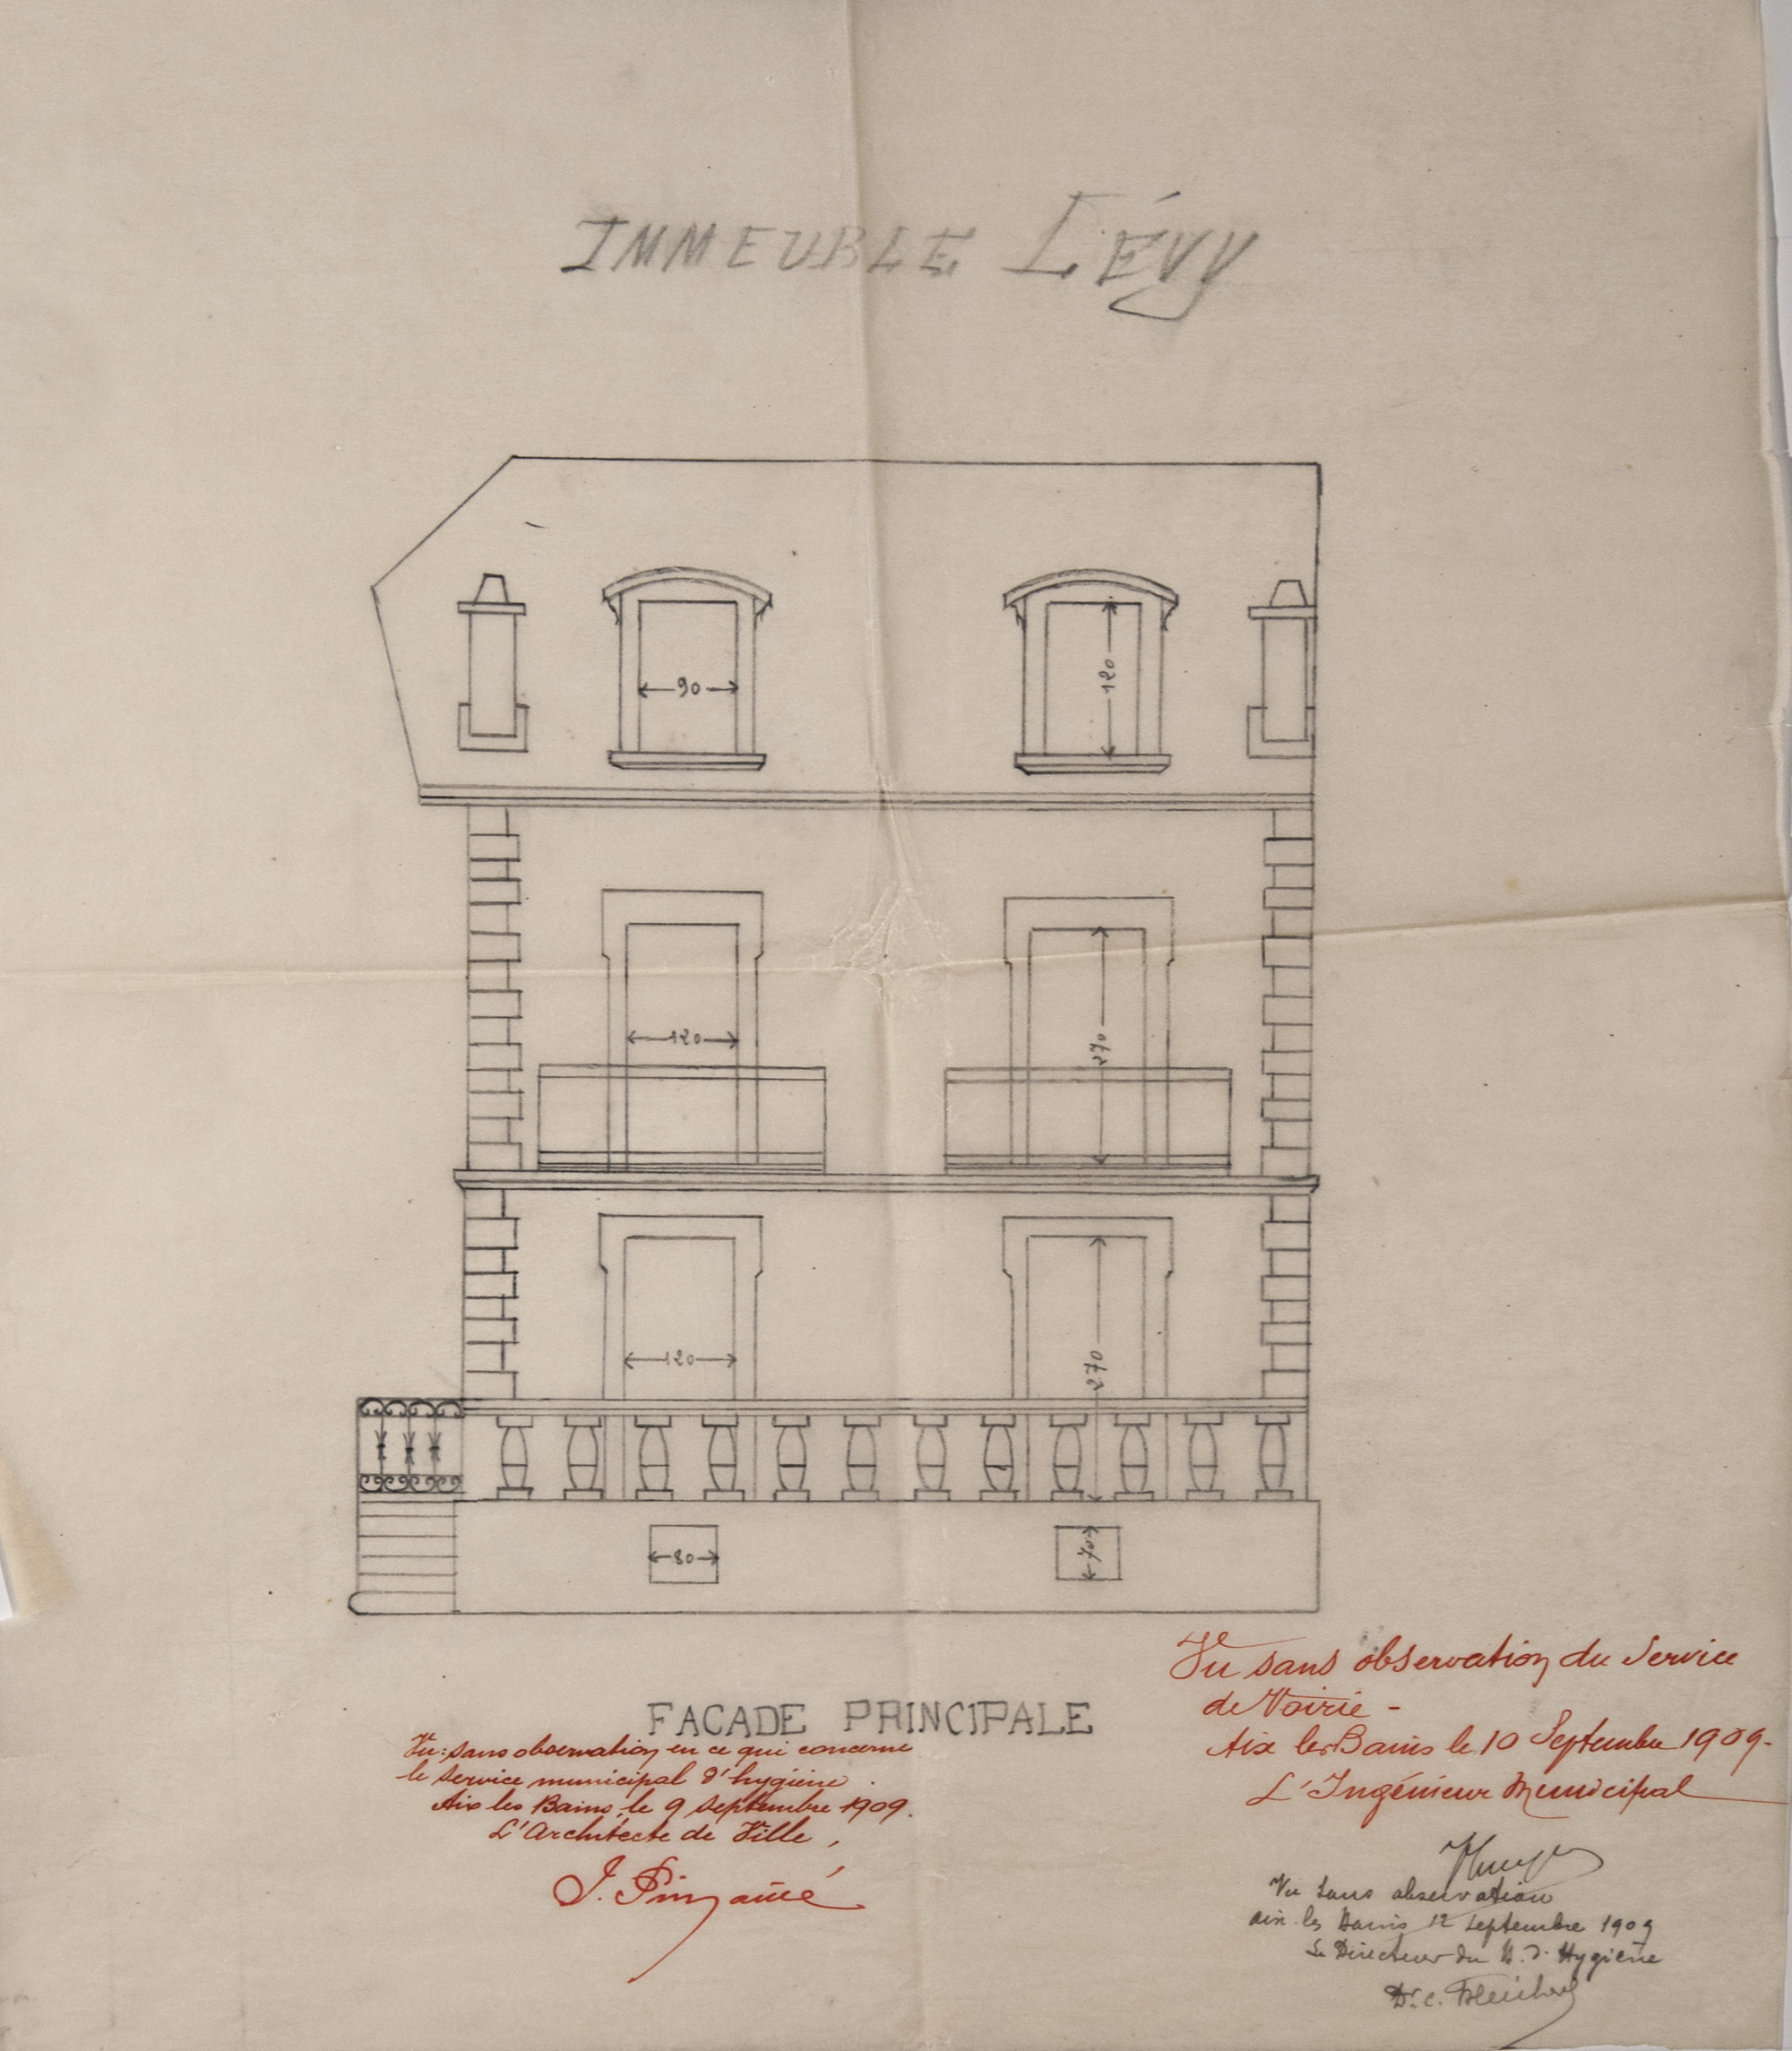 IMMEUBLE LÉVY
90
120
120
270
120
270
80
70
FACADE PRINCIPALE
Vu: sans observation en ce qui concerne
le service municipal d'hygiène.
Aix les Bains, le 9 Septembre 1909.
L'Architecte de Ville,
J. Pin
Vu sans observation du Service
de Voirie -
Aix les Bains le 10 Septembre 1909-
L'Ingénieur Municipal
Vu sans observation
Aix les Bains 12 Septembre 1909
Le Directeur du d'Hygiène
Dr. C.